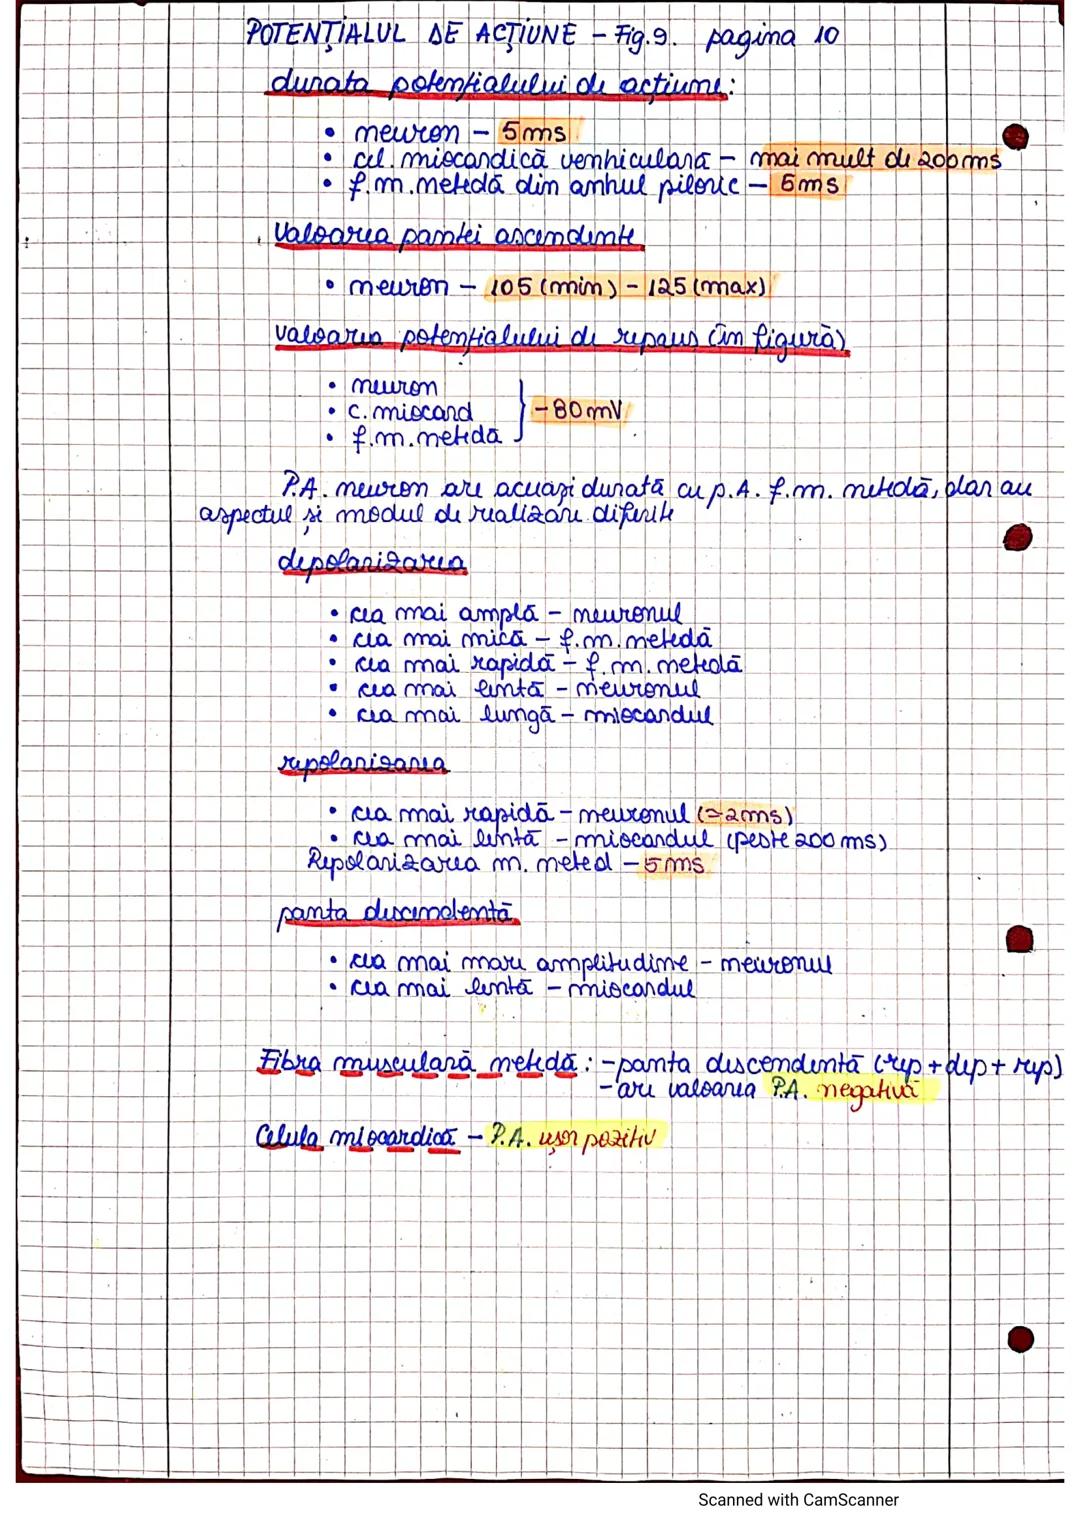 POTENȚIALUL DE ACȚIUNE – Fig.9. pagina 10
durata potențialului de acțiune:
• neuron – 5ms
• cel. miocardică ventriculară – mai mult de 200ms
• f.m.netedă din antrul piloric – 5ms
Valoarea pantei ascendente
• neuron – 105 (min) – 125 (max)
valoarea potențialului de repaus (în figură)
• neuron
• c. miocard } -80mV
• f.m.netedă
P.A. neuron are aceași durată cu p.A. f.m. netedă, dar au
aspectul și modul de realizare diferite
depolarizarea
• cea mai amplă – neuronul
• cea mai mică – f.m.netedă
• cea mai rapidă – f.m.netedă
• cea mai lentă – neuronul
• cea mai lungă – miocardul
repolarizarea
• cea mai rapidă – neuronul (≃2ms)
• cea mai lentă – miocardul (peste 200 ms)
Repolarizarea m. neted – 5ms
panta descendentă
• cea mai mare amplitudine – neuronul
• cea mai lentă – miocardul
Fibra musculară netedă: -panta descendentă (rep+dep+rep)
-are valoarea P.A. negativă
Celula miocardică – P.A. ușor pozitiv
Scanned with CamScanner